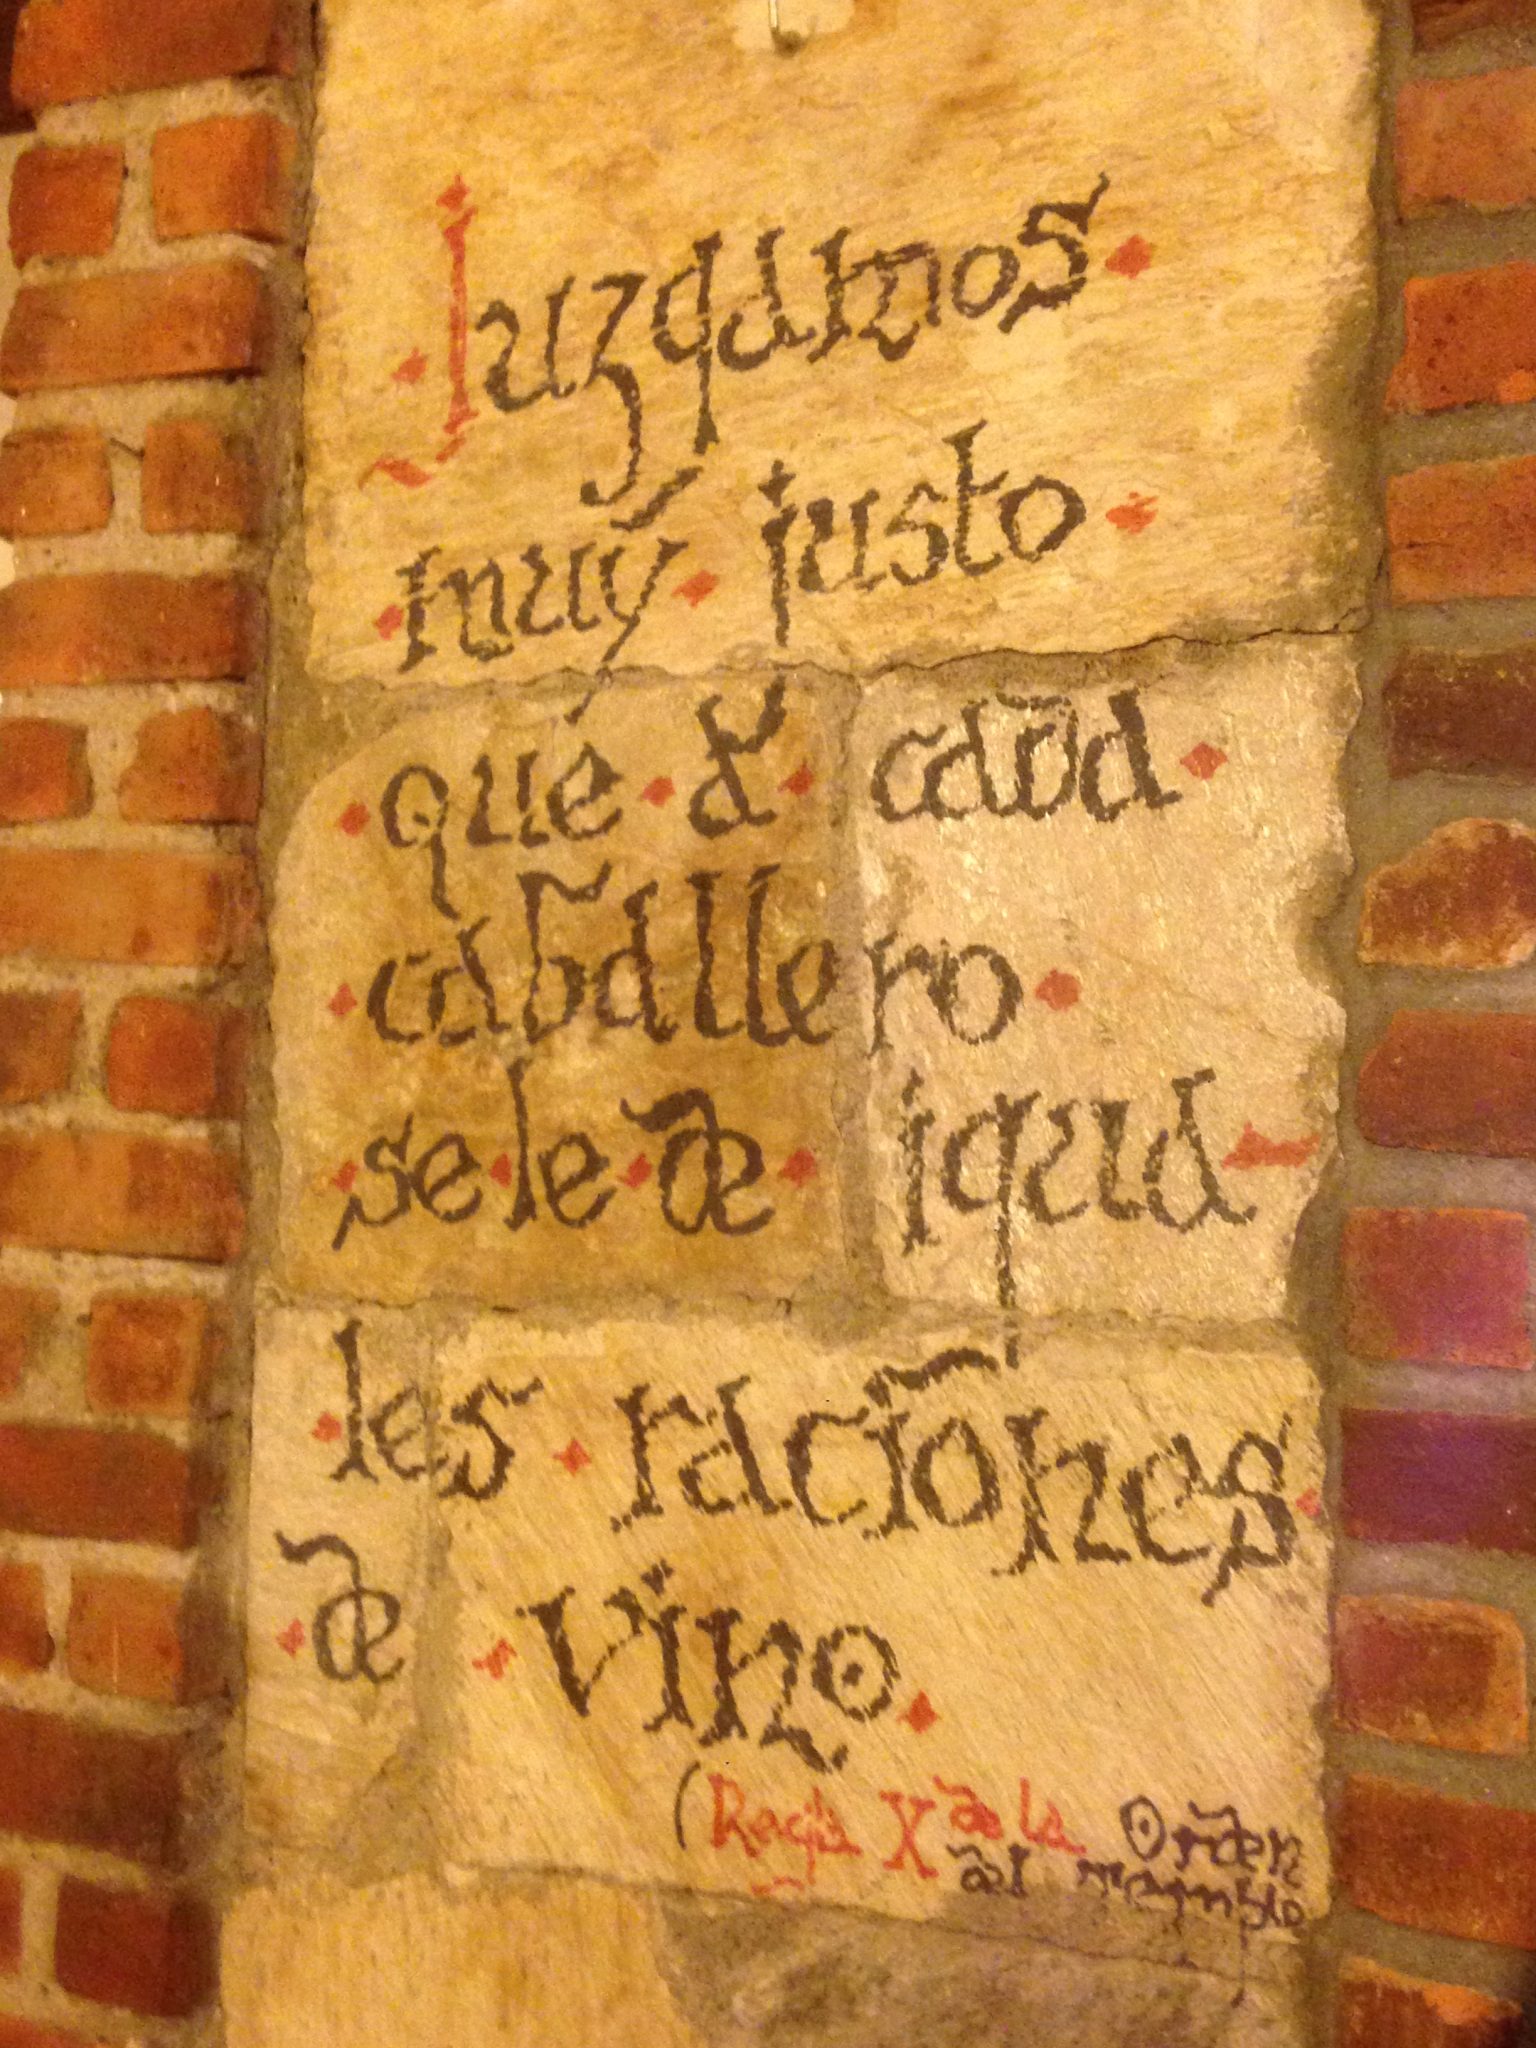 Juzgamos
muy justo
que a cada
caballero
se le de igua-
les raciones
de vino.
(Regla X de la Orden
del